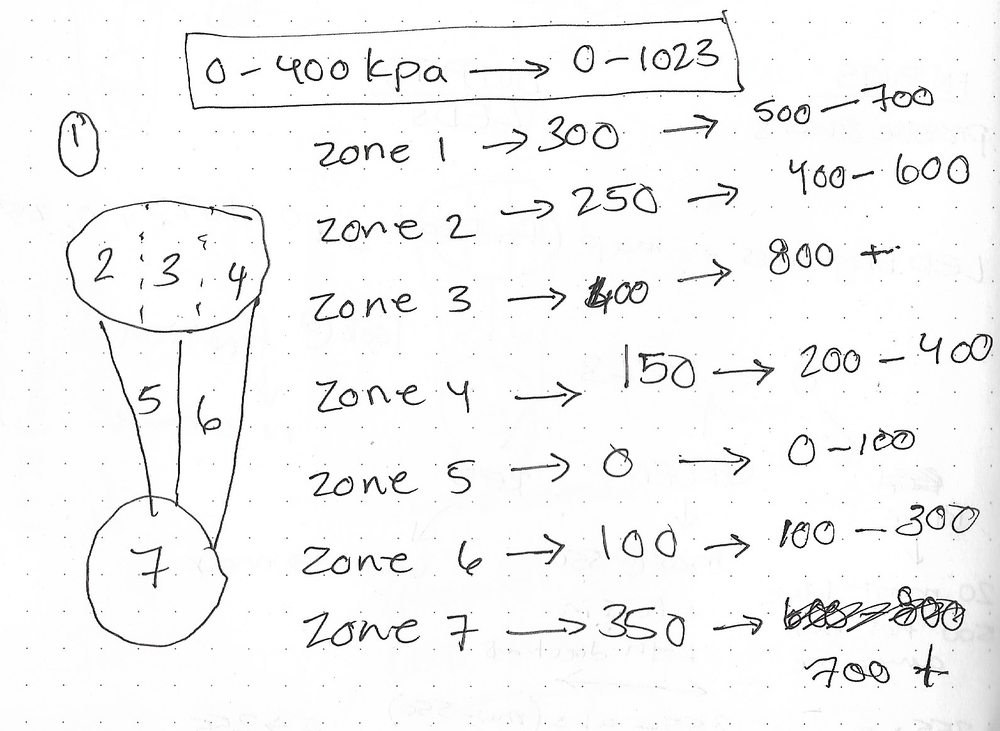 0 - 400 kpa → 0 - 1023
1
zone 1 → 300 → 500 - 700
zone 2 → 250 → 400 - 600
2 3 4
zone 3 → 400 → 800 +
zone 4 → 150 → 200 - 400
5 6
zone 5 → 0 → 0 - 100
zone 6 → 100 → 100 - 300
7
zone 7 → 350 →
700 +